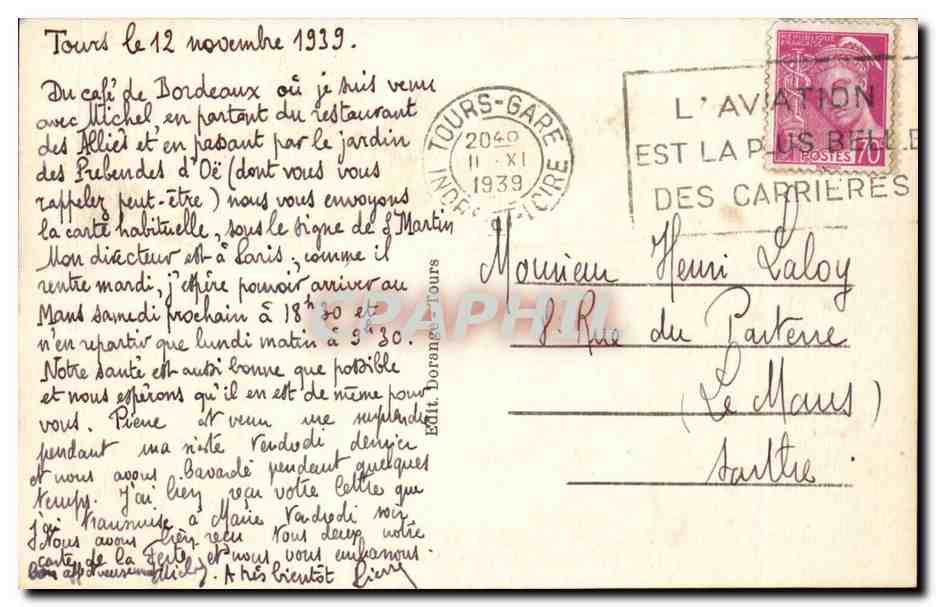 Tours le 12 novembre 1939.
Du café de Bordeaux où je suis venu
avec Michel, en partant du restaurant
des Alliés et en passant par le jardin
des Prébendes d'Oë (dont vous vous
rappelez peut-être) nous vous envoyons
la carte habituelle, sous le signe de St Martin
Mon directeur est à Paris ; comme il
rentre mardi, j'espère pouvoir arriver au
Mans samedi prochain à 18h30 et
n'en repartir que lundi matin à 9h30.
Notre santé est aussi bonne que possible
et nous espérons qu'il en est de même pour
vous. Pierre est venu me surprendre
pendant ma sieste vendredi dernier
et nous avons bavardé pendant quelques
temps. J'ai bien reçu votre lettre que
j'ai transmise à Marie vendredi soir
Nous avons bien reçu tous deux votre
carte de la Ferté, et nous vous embrassons
bien affectueusement Michel. A très bientôt Pierre
Edit. Dorange - Tours
TOURS-GARE
20H
11-XI
1939
INDRE-ET-LOIRE
L'AVIATION
EST LA PLUS BELLE
DES CARRIÈRES
REPUBLIQUE
FRANÇAISE
POSTES 70
Monsieur Henri Laloy
8 Rue du Parterre
(Le Mans)
Sarthe
CPAPHIL